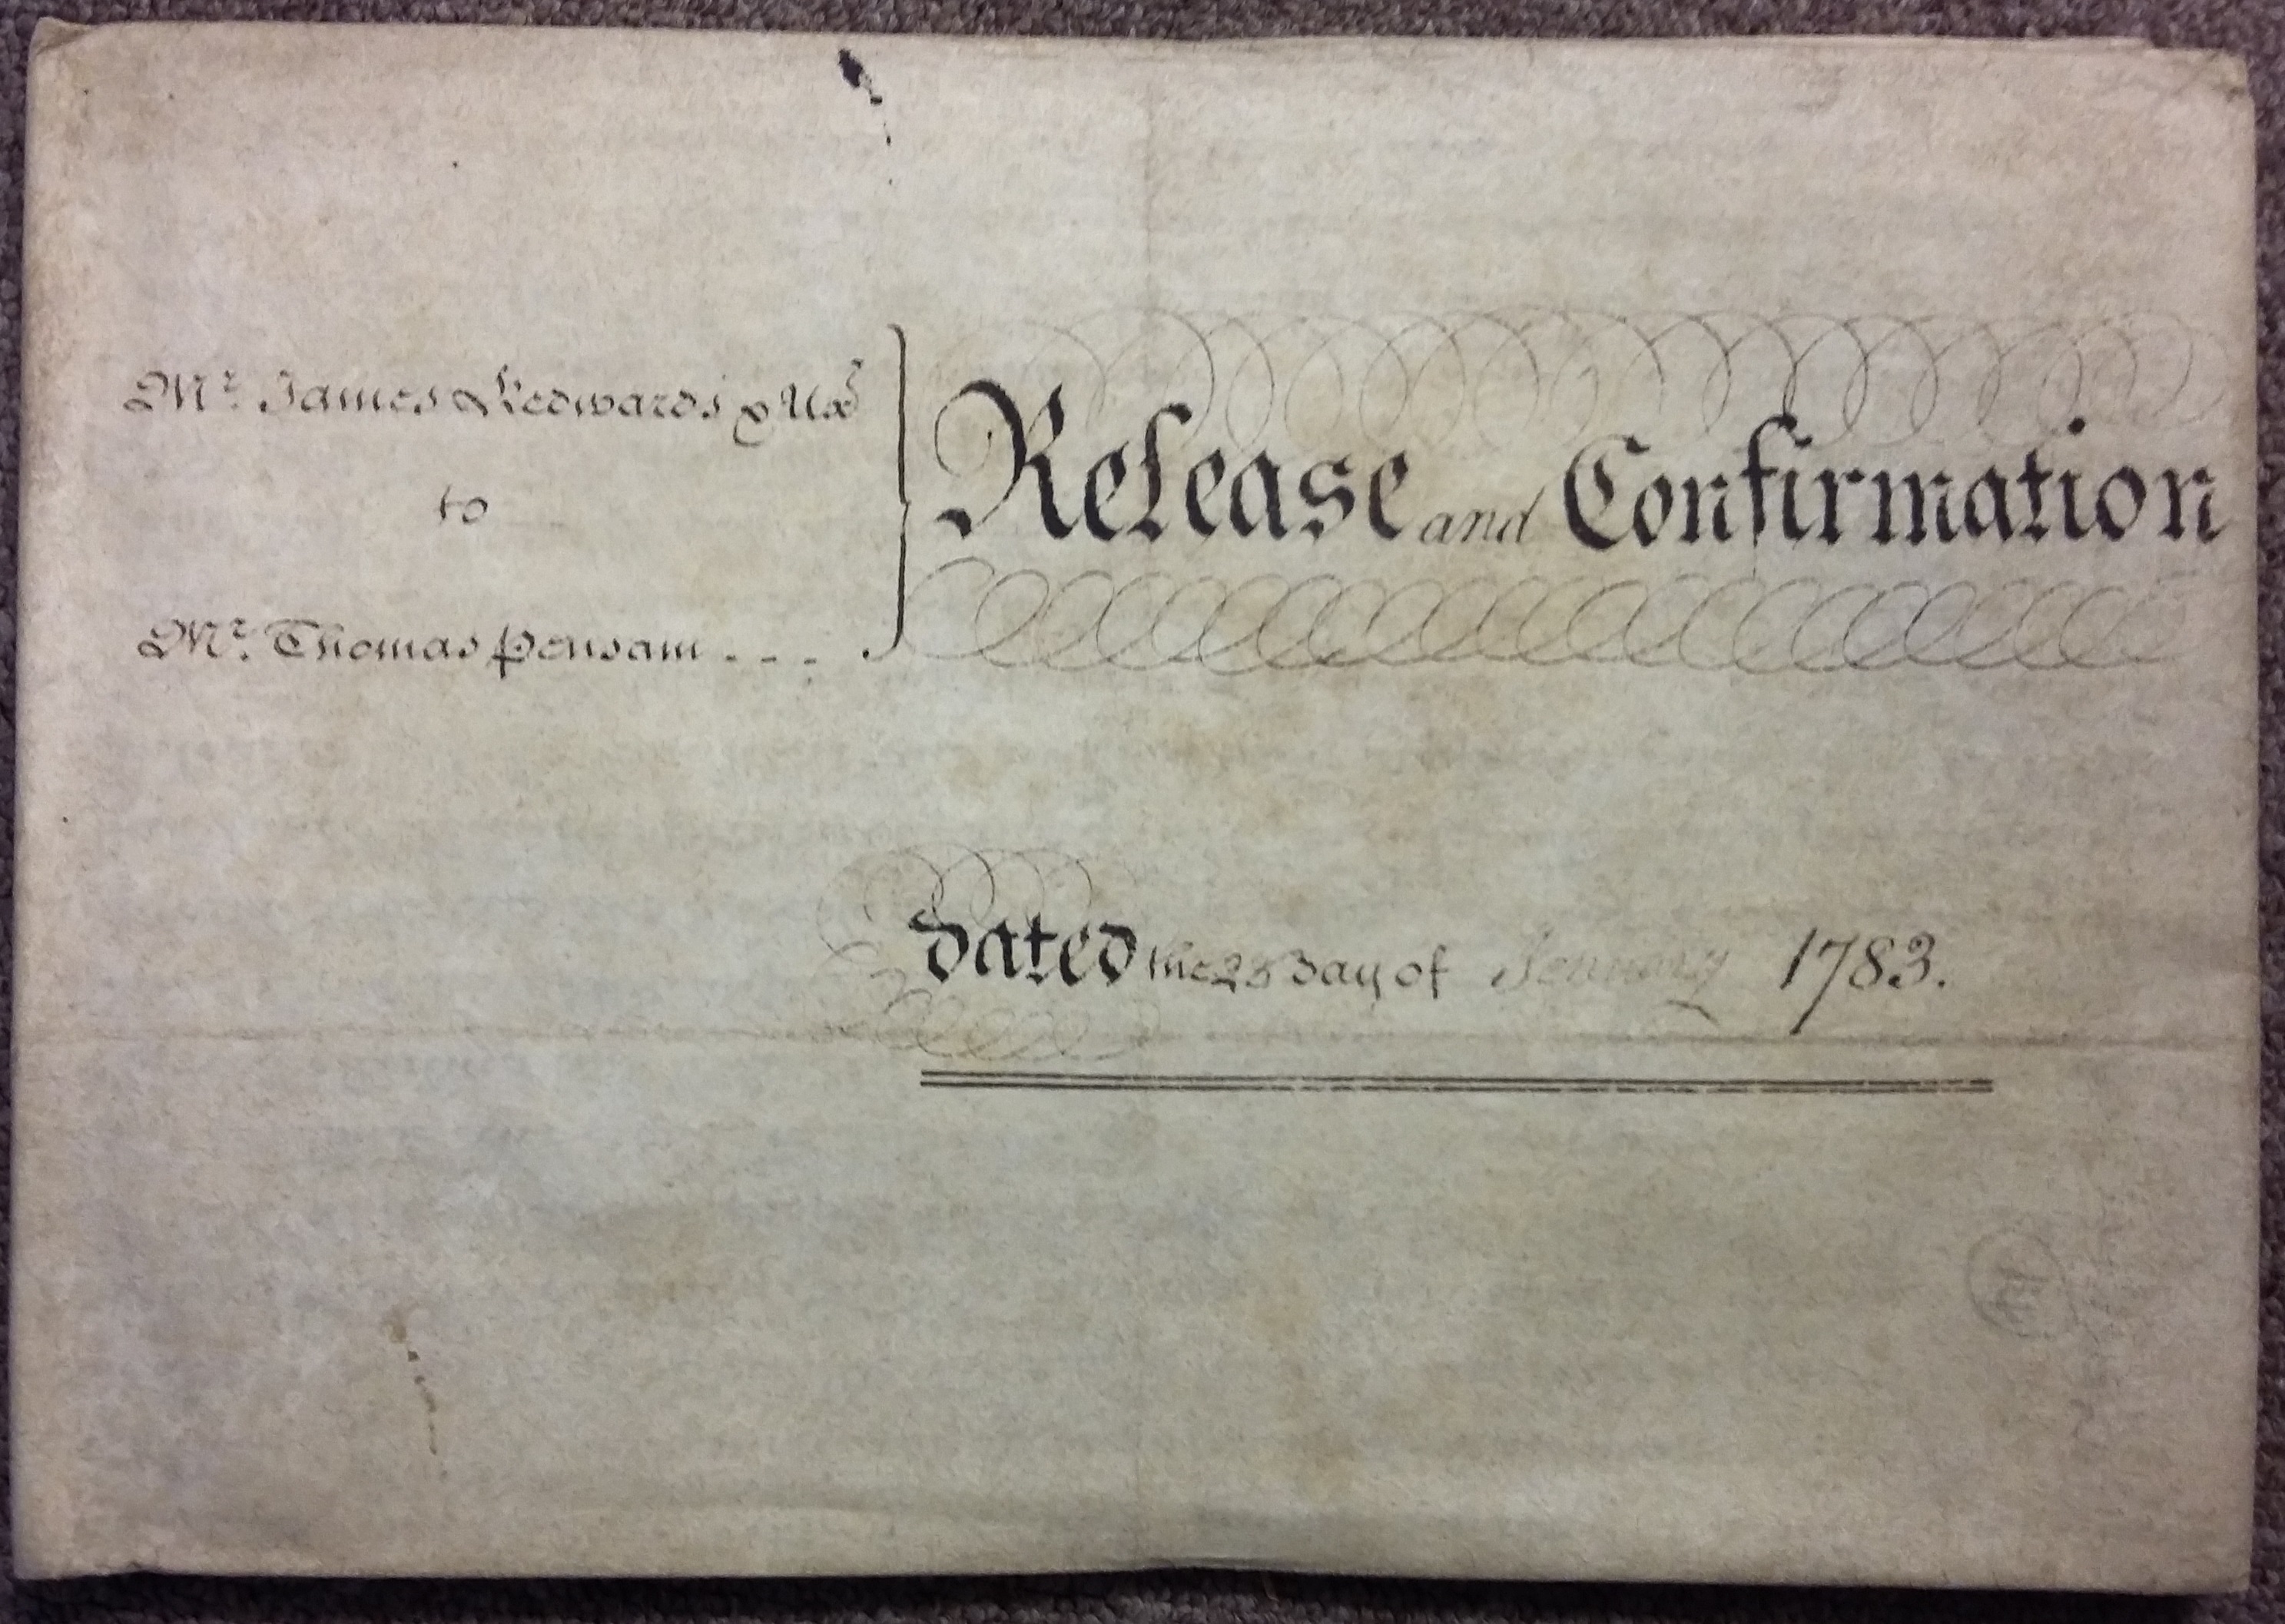 Mr. James Kedwards & Uxr
to
Mr. Thomas Pensam - - -
Release and Confirmation
Dated the 23 Day of January 1783.